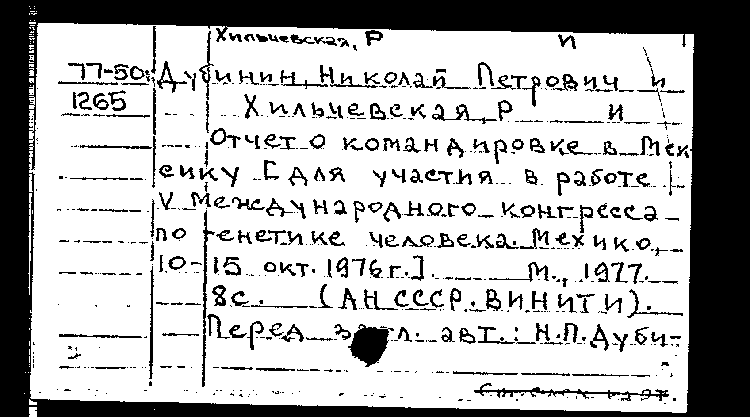 Хильчевская, Р И
77-50 Дубинин, Николай Петрович и
1265 Хильчевская, Р И
Отчет о командировке в Мек-
сику [для участия в работе
V Международного конгресса
по генетике человека. Мехико,
10-15 окт. 1976г.] М., 1977.
8с. (АН СССР. ВИНИТИ).
Перед загл. авт.: Н.П. Дуби-